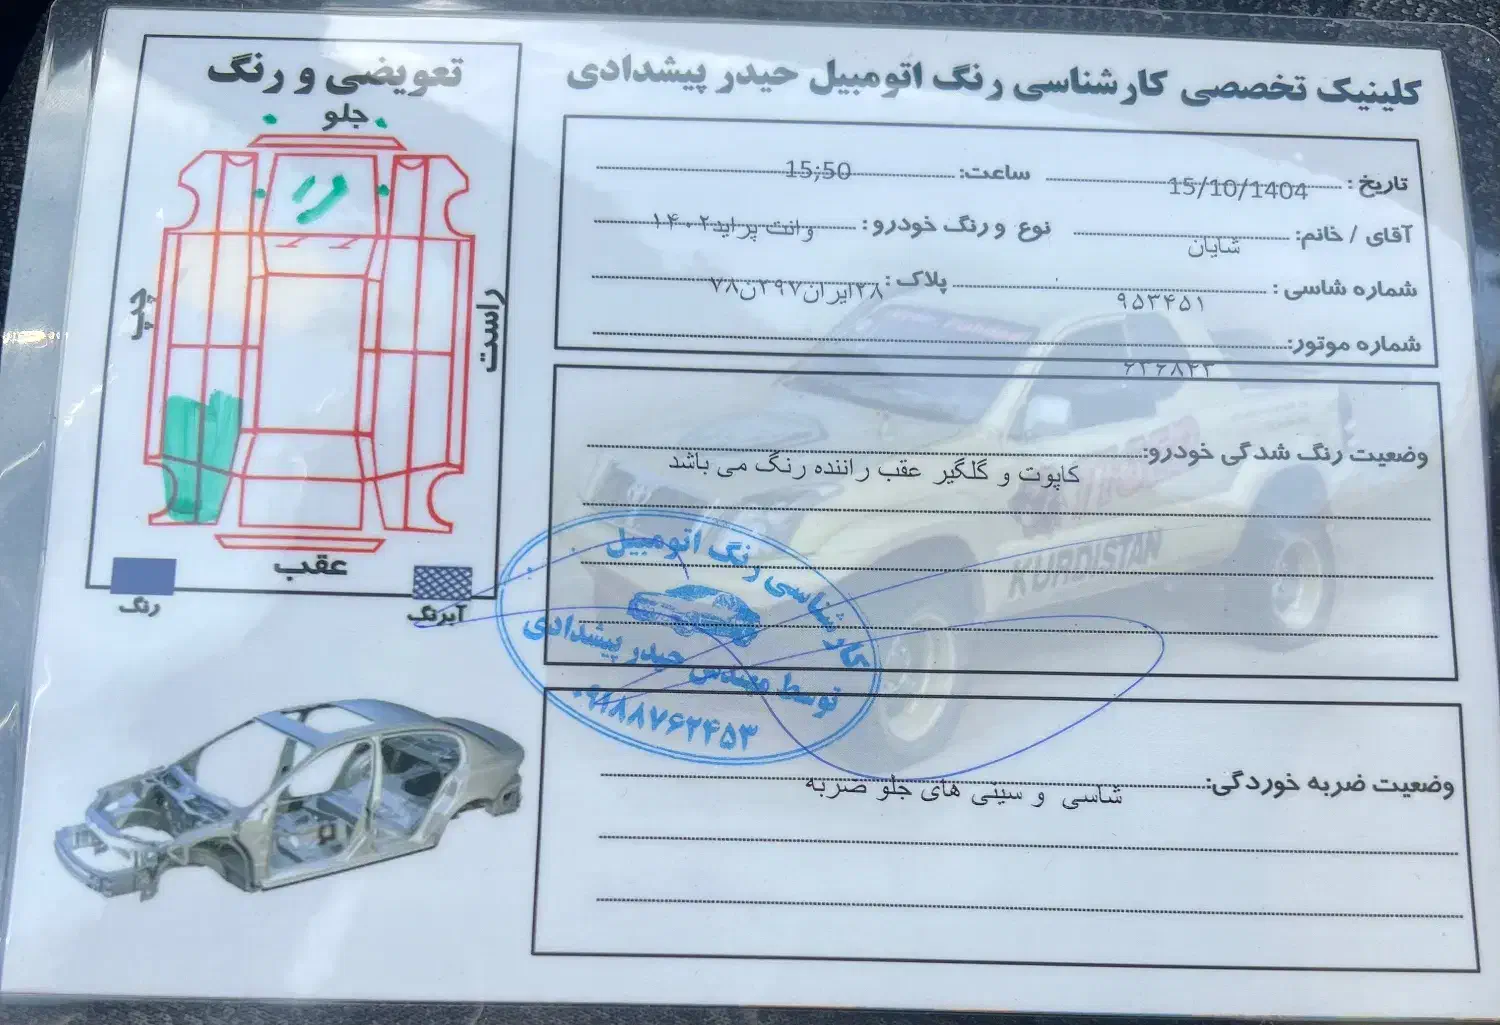 کلینیک تخصصی کارشناسی رنگ اتومبیل حیدر پیشدادی
تاریخ: 15/10/1404 ساعت: 15;50
آقای / خانم: شایان نوع و رنگ خودرو: وانت پراید ۱۴۰۲
شماره شاسی: ۹۵۳۴۵۱ پلاک:
شماره موتور:
وضعیت رنگ شدگی خودرو:
کاپوت و گلگیر عقب راننده رنگ می باشد
وضعیت ضربه خوردگی: شاسی و سینی های جلو ضربه
تعویضی و رنگ
جلو
چپ
راست
عقب
رنگ
آبرنگ
کارشناسی رنگ اتومبیل
توسط مهندس حیدر پیشدادی
۰۹۱۸۸۷۶۲۴۵۳
KURDISTAN